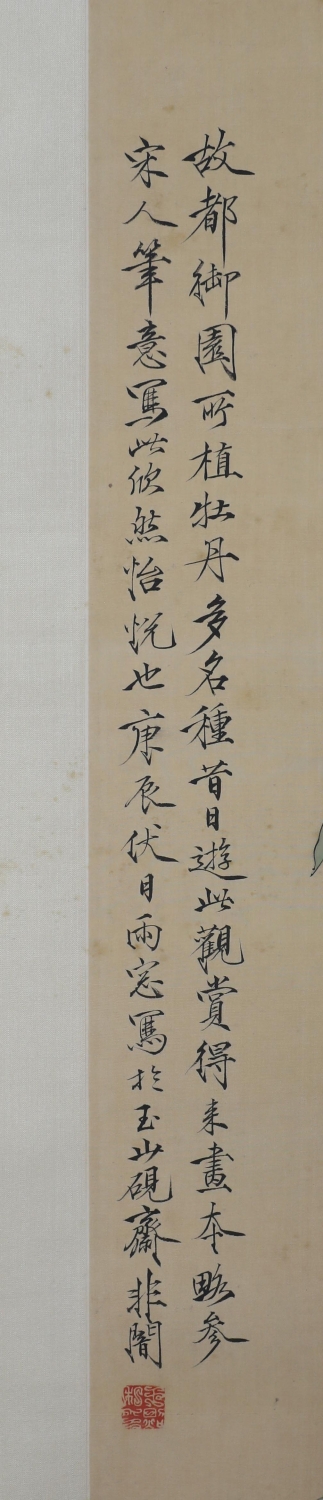 故都御園所植牡丹多名種昔日遊此觀賞得来畫本略參
宋人筆意寫此欣然怡悦也庚辰伏日雨窓寫於玉山硯齋非闇